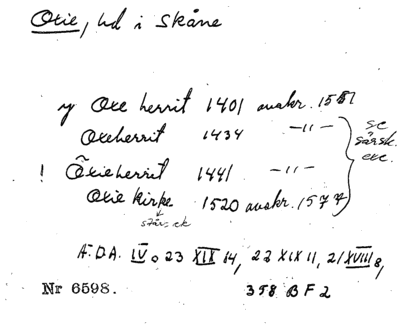 Oxie, hd i Skåne
y Oxe herrit 1401 avskr. 1551
Oxeherrit 1434 —〃—
! Õxieherrit 1441 —〃—
Oxie kirke 1520 avskr. 1577
se särsk. exc.
står: ek
Ä.D.A. IV o 23 XIX 14, 22 XIX 11, 21 XVIII 8,
Nr 6598. 358 B F 2